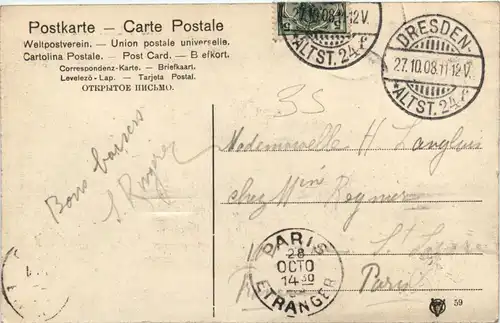 Postkarte – Carte Postale
Weltpostverein. – Union postale universelle.
Cartolina Postale. – Post Card. – B efkort.
Correspondenz-Karte. – Briefkaart.
Levelező-Lap. – Tarjeta Postal.
ОТКРЫТОЕ ПИСЬМО.
27.10.08.11-12V.
ALTST. 24
DRESDEN-
27.10.08.11-12V.
ALTST. 24
Bons baisers
Mademoiselle H
chez
Regnier
St
Paris
PARIS
28
OCTO
14 30
ETRANGER
59